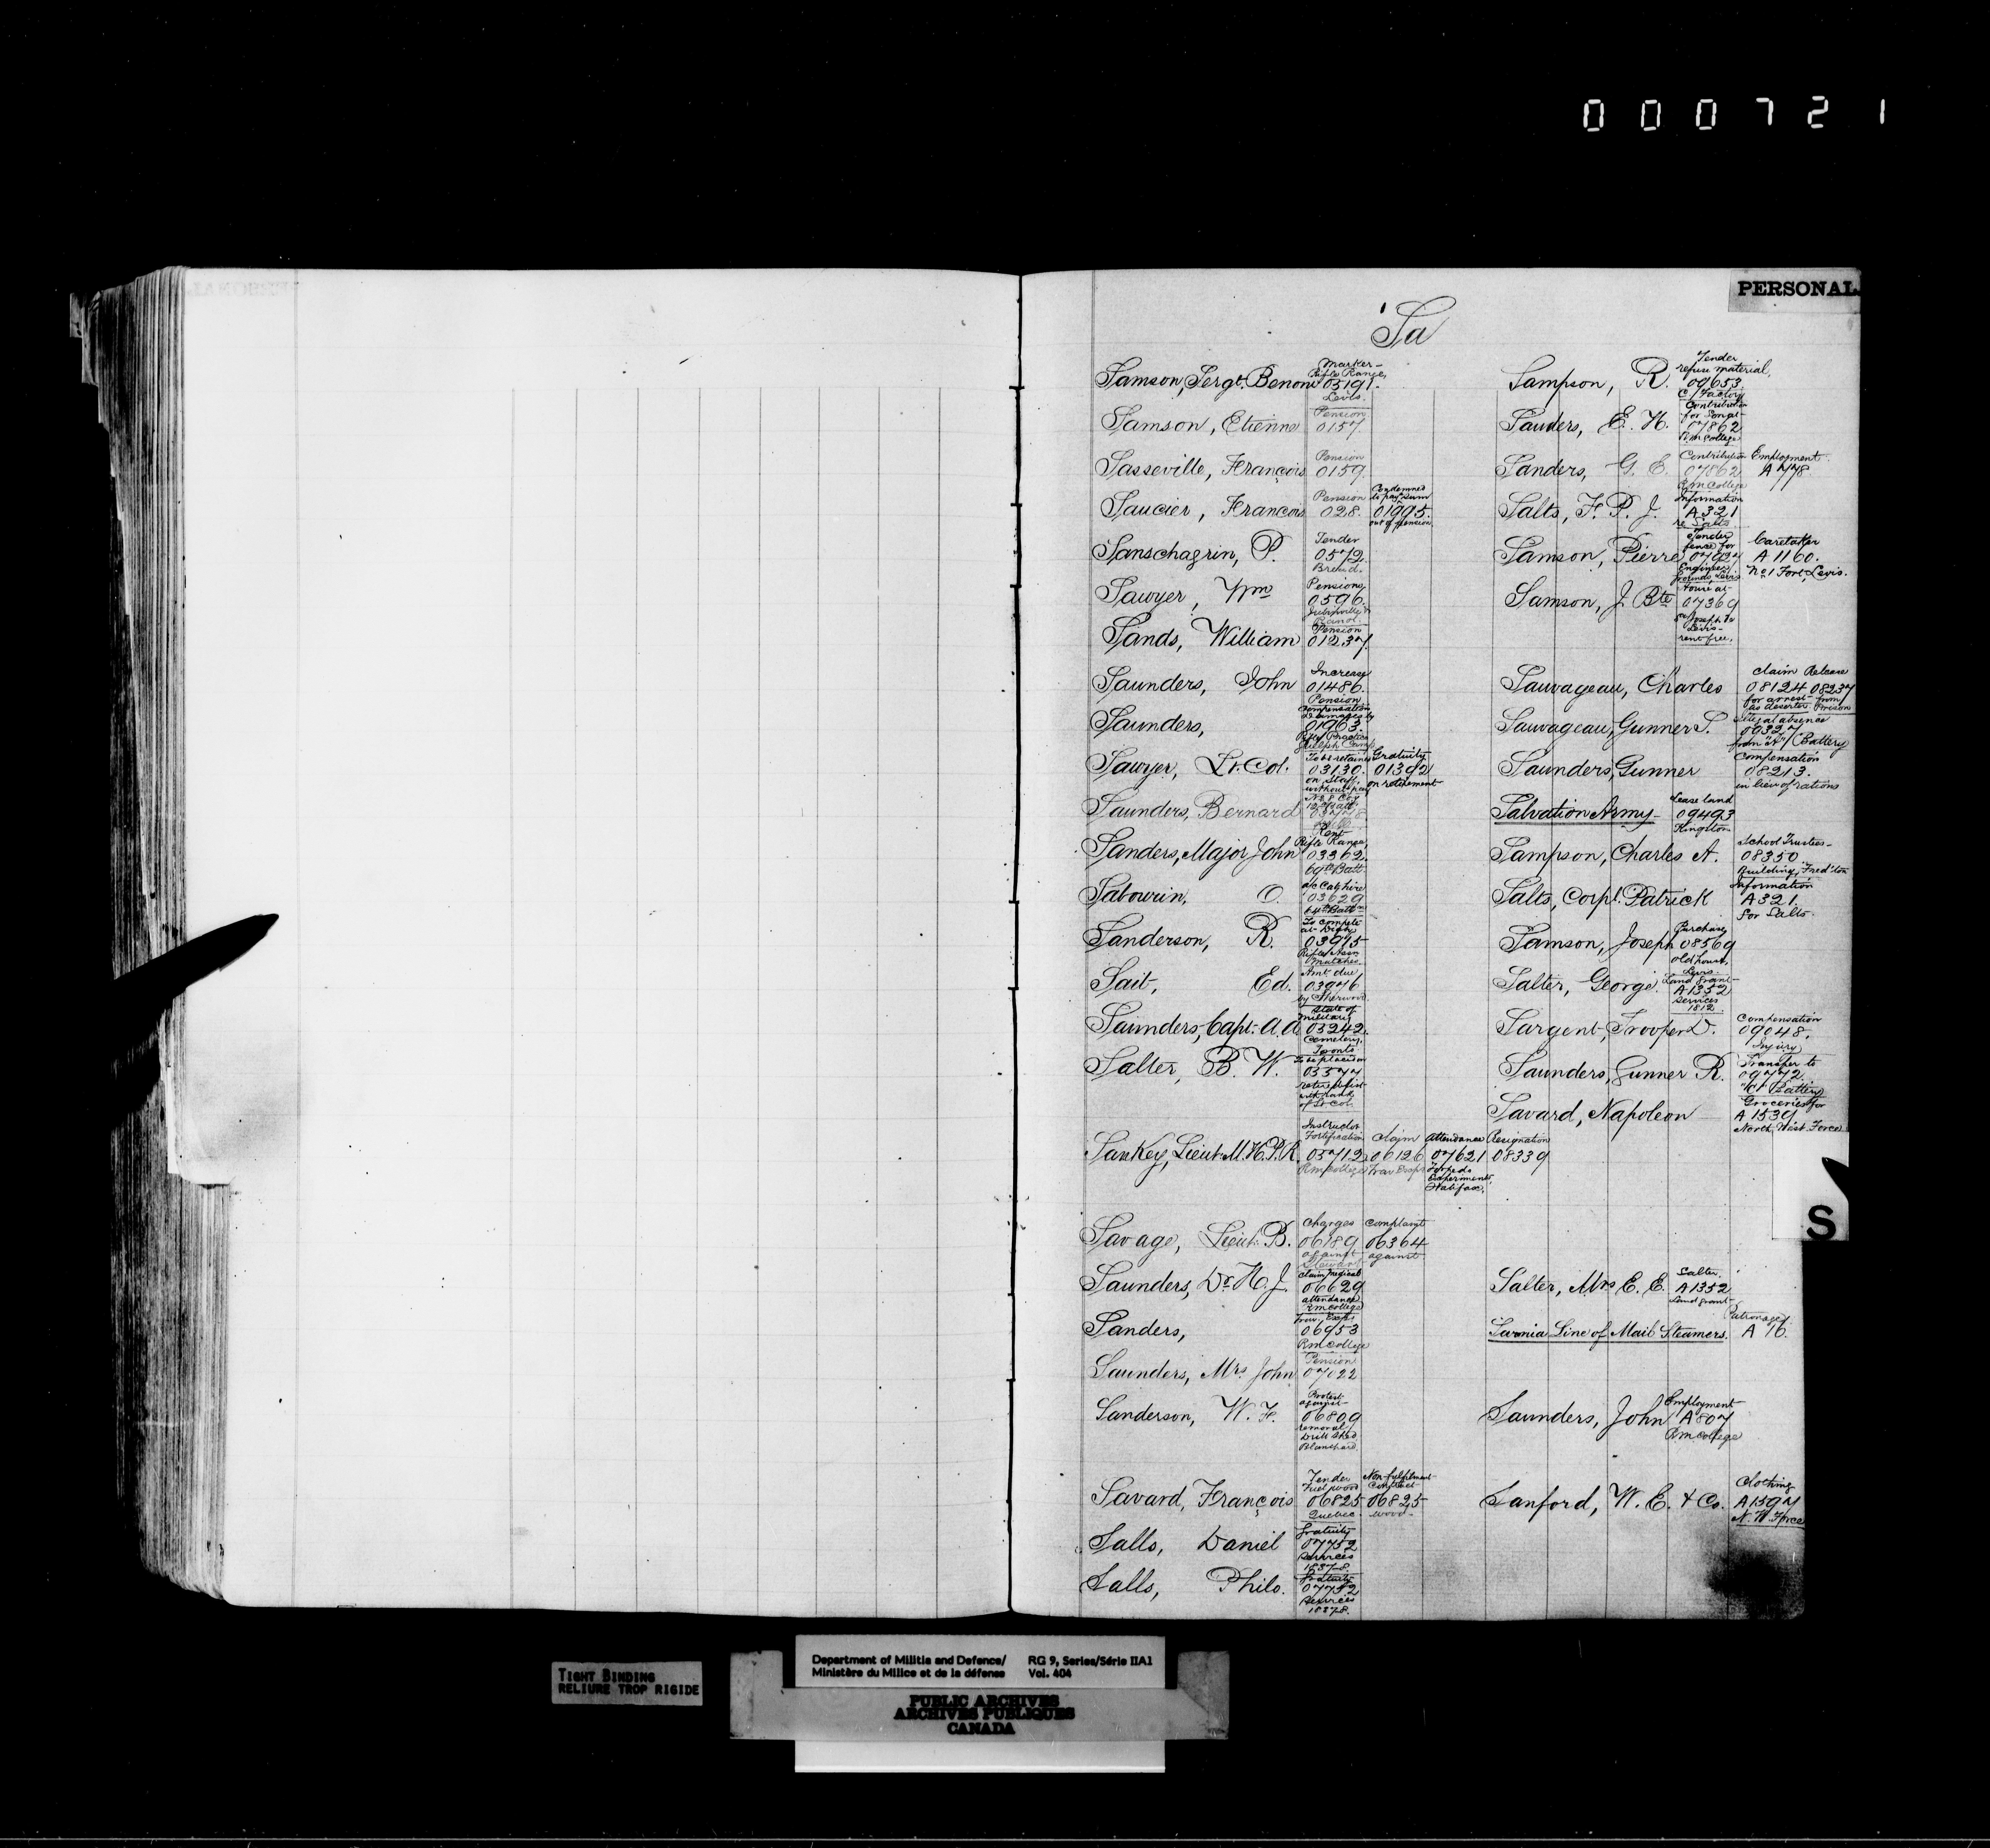 000721
PERSONAL
Sa
Samson, Sergt. Benoni Marker - Rifle Range, 05191. Levis.
Samson, Etienne Pension 0157.
Sasseville, François Pension 0159
Saucier, François Pension 028. Condemned to pay sum 01995. out of pension.
Sanschagrin, P. Tender 0572. Bread.
Sawyer, Wm Pensions 0596
Sands, William Pension 01237.
Saunders, John Increase 01486. Pension
Saunders, Compensation 01963.
Sawyer, Lt. Col. To be retained 03130. on Staff without pay Gratuity 01392 on retirement
Saunders, Bernard
Sanders, Major John Rent Rifle Range, 03362. 69th Batt.
Sabourin, O. 03629 64th Batt.
Sanderson, R. To compete 03975 Rifle Assn Matches.
Sait, Ed. Amt. due 03976 by Sherwood.
Saunders, Capt. A. A. State of Military 03242. Cemetery. Toronto
Salter, B. W. To be placed on 03577 retired list with rank of Lt. Col.
Sankey, Lieut. M. H. P. R. Instructor Fortification 05712. R M College Claim 06126 Trav. Exps Attendance 07621 Torpedo Experiments, Halifax. Resignation 08339
Savage, Lieut. B. Charges 06189 against Complaint 06364 against
Saunders, Dr. H. J. Claim Medical 06629 attendance R M College
Sanders, Trav. Exps 06953 R M College
Saunders, Mrs. John Pension 07022
Sanderson, W. F. Protest against 06809 removal Drill Shed Blanchard.
Savard, François Tender Fuel wood 06825 Quebec. Non-fulfilment Contract 06825 wood.
Salls, Daniel Gratuity 07752 Services 1837-8.
Salls, Philo. Gratuity 07752 Services 1837-8.
Sampson, R. Tender refuse material, 09653. C. Factory
Sanders, E. H. Contribution for Son at 07862 R. M. College
Sanders, G. E. Contribution 07862 R M College Employment A 778
Salts, F. P. J. Information A 321 re Salts
Samson, Pierre Tender fence for 07927 Engineers grounds, Levis. Caretaker A 1160. No. 1 Fort, Levis.
Samson, J. Bte House at 07369 St. Joseph de Levis - rent free.
Sauvageau, Charles Claim 08124 for arrest as deserter Release 08237 from Prison
Sauvageau, Gunner S. Illegal absence 09327 from "A" Battery
Saunders, Gunner Compensation 08213. in lieu of rations
Salvation Army - Lease land 09493 Kingston
Sampson, Charles A. School Trustees - 08350 Building, Fred'ton
Salts, Corpl. Patrick Information A 321. for Salts.
Samson, Joseph Purchase 08569 old house, Levis.
Salter, George. Land Grant - A 1352 Services 1812.
Sargent, Trooper D. Compensation 09048. Injury
Saunders, Gunner R. Transfer to 09772. Battery
Savard, Napoleon Groceries for A 1539 North West Force
Salter, Mrs E. E. Salter. A 1352 Land grant -
Sarnia Line of Mail Steamers. Patronage A 76.
Saunders, John Employment A 807 R M College
Sanford, W. E. & Co. Clothing A 1597 N. W. Force
S
TIGHT BINDING
RELIURE TROP RIGIDE
Department of Militia and Defence/ RG 9, Series/Série IIA1
Ministère du Milice et de la défense Vol. 404
PUBLIC ARCHIVES
ARCHIVES PUBLIQUES
CANADA